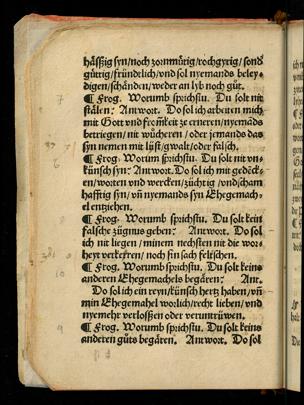 hässzig syn/noch zornmütig/rochgyrig/sond
güttig/fründtlich/vnd sol nyemands beley⸗
digen/schånden/weder an lyb noch gůt.
¶ Frog. Worumb sprichstu. Du solt nit
stålen: Antwort. Do sol ich arbeiten mich
mit Gott vnd fromkeit ze erneren/nyemāds
betriegen/nit wůcheren/oder jemands das
syn nemen mit lüst/gwalt/oder falsch.
¶ Frog. Worum sprichstu. Du solt nit vn⸗
künsch syn: Antwort. Do sol ich mit gedēck⸗
en/worten vnd wercken/züchtig/vnd scham
hafftig syn/vn̄ nyemands syn Ehegemach⸗
el entziehen.
¶ Frog. Worumb sprichstu. Du solt kein
falsche zügnus geben: Antwort. Do sol
ich nit liegen/minem nechsten nit die wor⸗
heyt verkeren/noch sin sach felschen.
¶ Frog. Worumb sprichstu. Du solt keins
anderen Ehegemachels begåren: Ant.
Do sol ich ein reyn/künsch hertz haben/vn̄
min Ehegemahel worlich/recht lieben/vnd
nyemehr verlossen oder veruntrüwen.
¶ Frog. Worumb sprichstu. Du solt keins
anderen gůts begåren. Antwort. Do sol
7
8
10
9